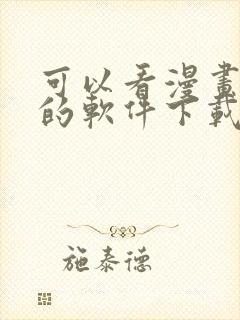 可以看漫畫
的軟件下載
施泰德